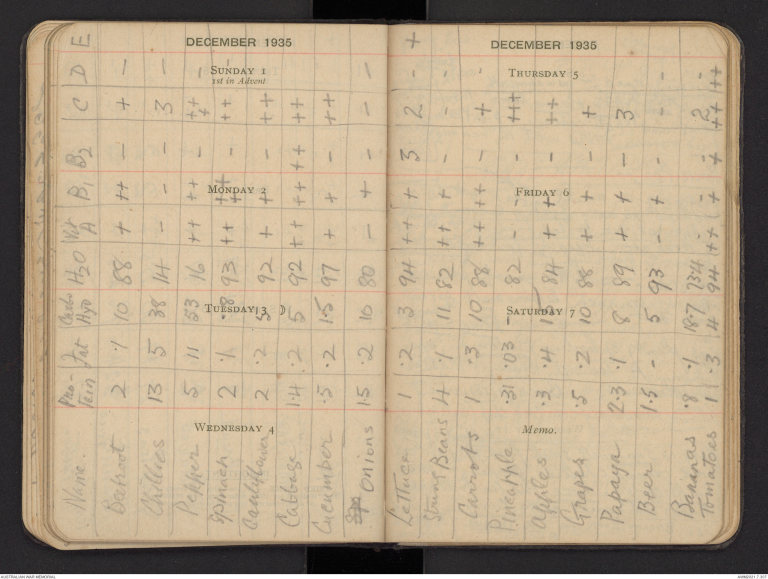 DECEMBER 1935
SUNDAY 1
1st in Advent
MONDAY 2
TUESDAY 3
WEDNESDAY 4
Name. Pro-tein Fat Carbo Hyd H2O Vit A B1 B2 C D E
Beetroot 2 ·1 10 88 + ++ – + –
Chillies 13 5 38 14 – – – 3 –
Pepper 5 11 53 16 ++ ++ – +++ –
Spinach 2 ·1 93 ++ – ++
Cauliflower 2 ·2 5 92 + + – ++
Cabbage 1·4 ·2 5 92 ++ ++ ++
Cucumber ·5 ·2 1·5 97 + + – ++
Onions 1·5 ·2 10 80 – + – – –
DECEMBER 1935
THURSDAY 5
FRIDAY 6
SATURDAY 7
Memo.
Lettuce 1 ·2 3 94 ++ + 3 2 - +
String Beans 4 ·1 11 82 ++ + - - -
Carrots 1 ·3 10 88 ++ ++ - + -
Pineapple ·31 ·03 - 82 - - - +++
Apples ·3 ·4 84 + + - ++
Grapes ·5 ·2 10 88 + + - +
Papaya 2·3 ·1 8 89 + + - 3
Beer 1·5 - 5 93 - + - - -
Bananas ·8 ·1 18·7 73·4 - - 2 -
Tomatoes 1 ·3 4 94 ++ + + ++ ++
AUSTRALIAN WAR MEMORIAL